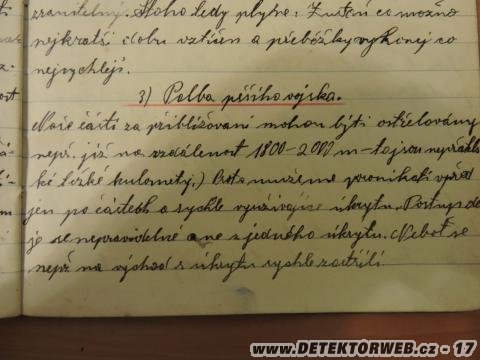 zranitelný. Z toho tedy plyne: Zůstaň co možno
nejkratší dobu vztýčen a přeběžky vykonej co
nejrychleji.
3) Palba pěšího vojska.
Naše části za přibližování mohou býti ostřelovány
nepř. již na vzdálenost 1800-2000 m - to jsou nepřátels
ké těžké kulomety.) Proto musíme pronikati vpřed
jen po částech a rychle využívajíce úkrytu. Postup se
je se nepravidelně a ne z jednoho úkrytu. Neboť se
nepř na východ z úkrytu rychle zastřílí
www.DETEKTORWEB.cz - 17